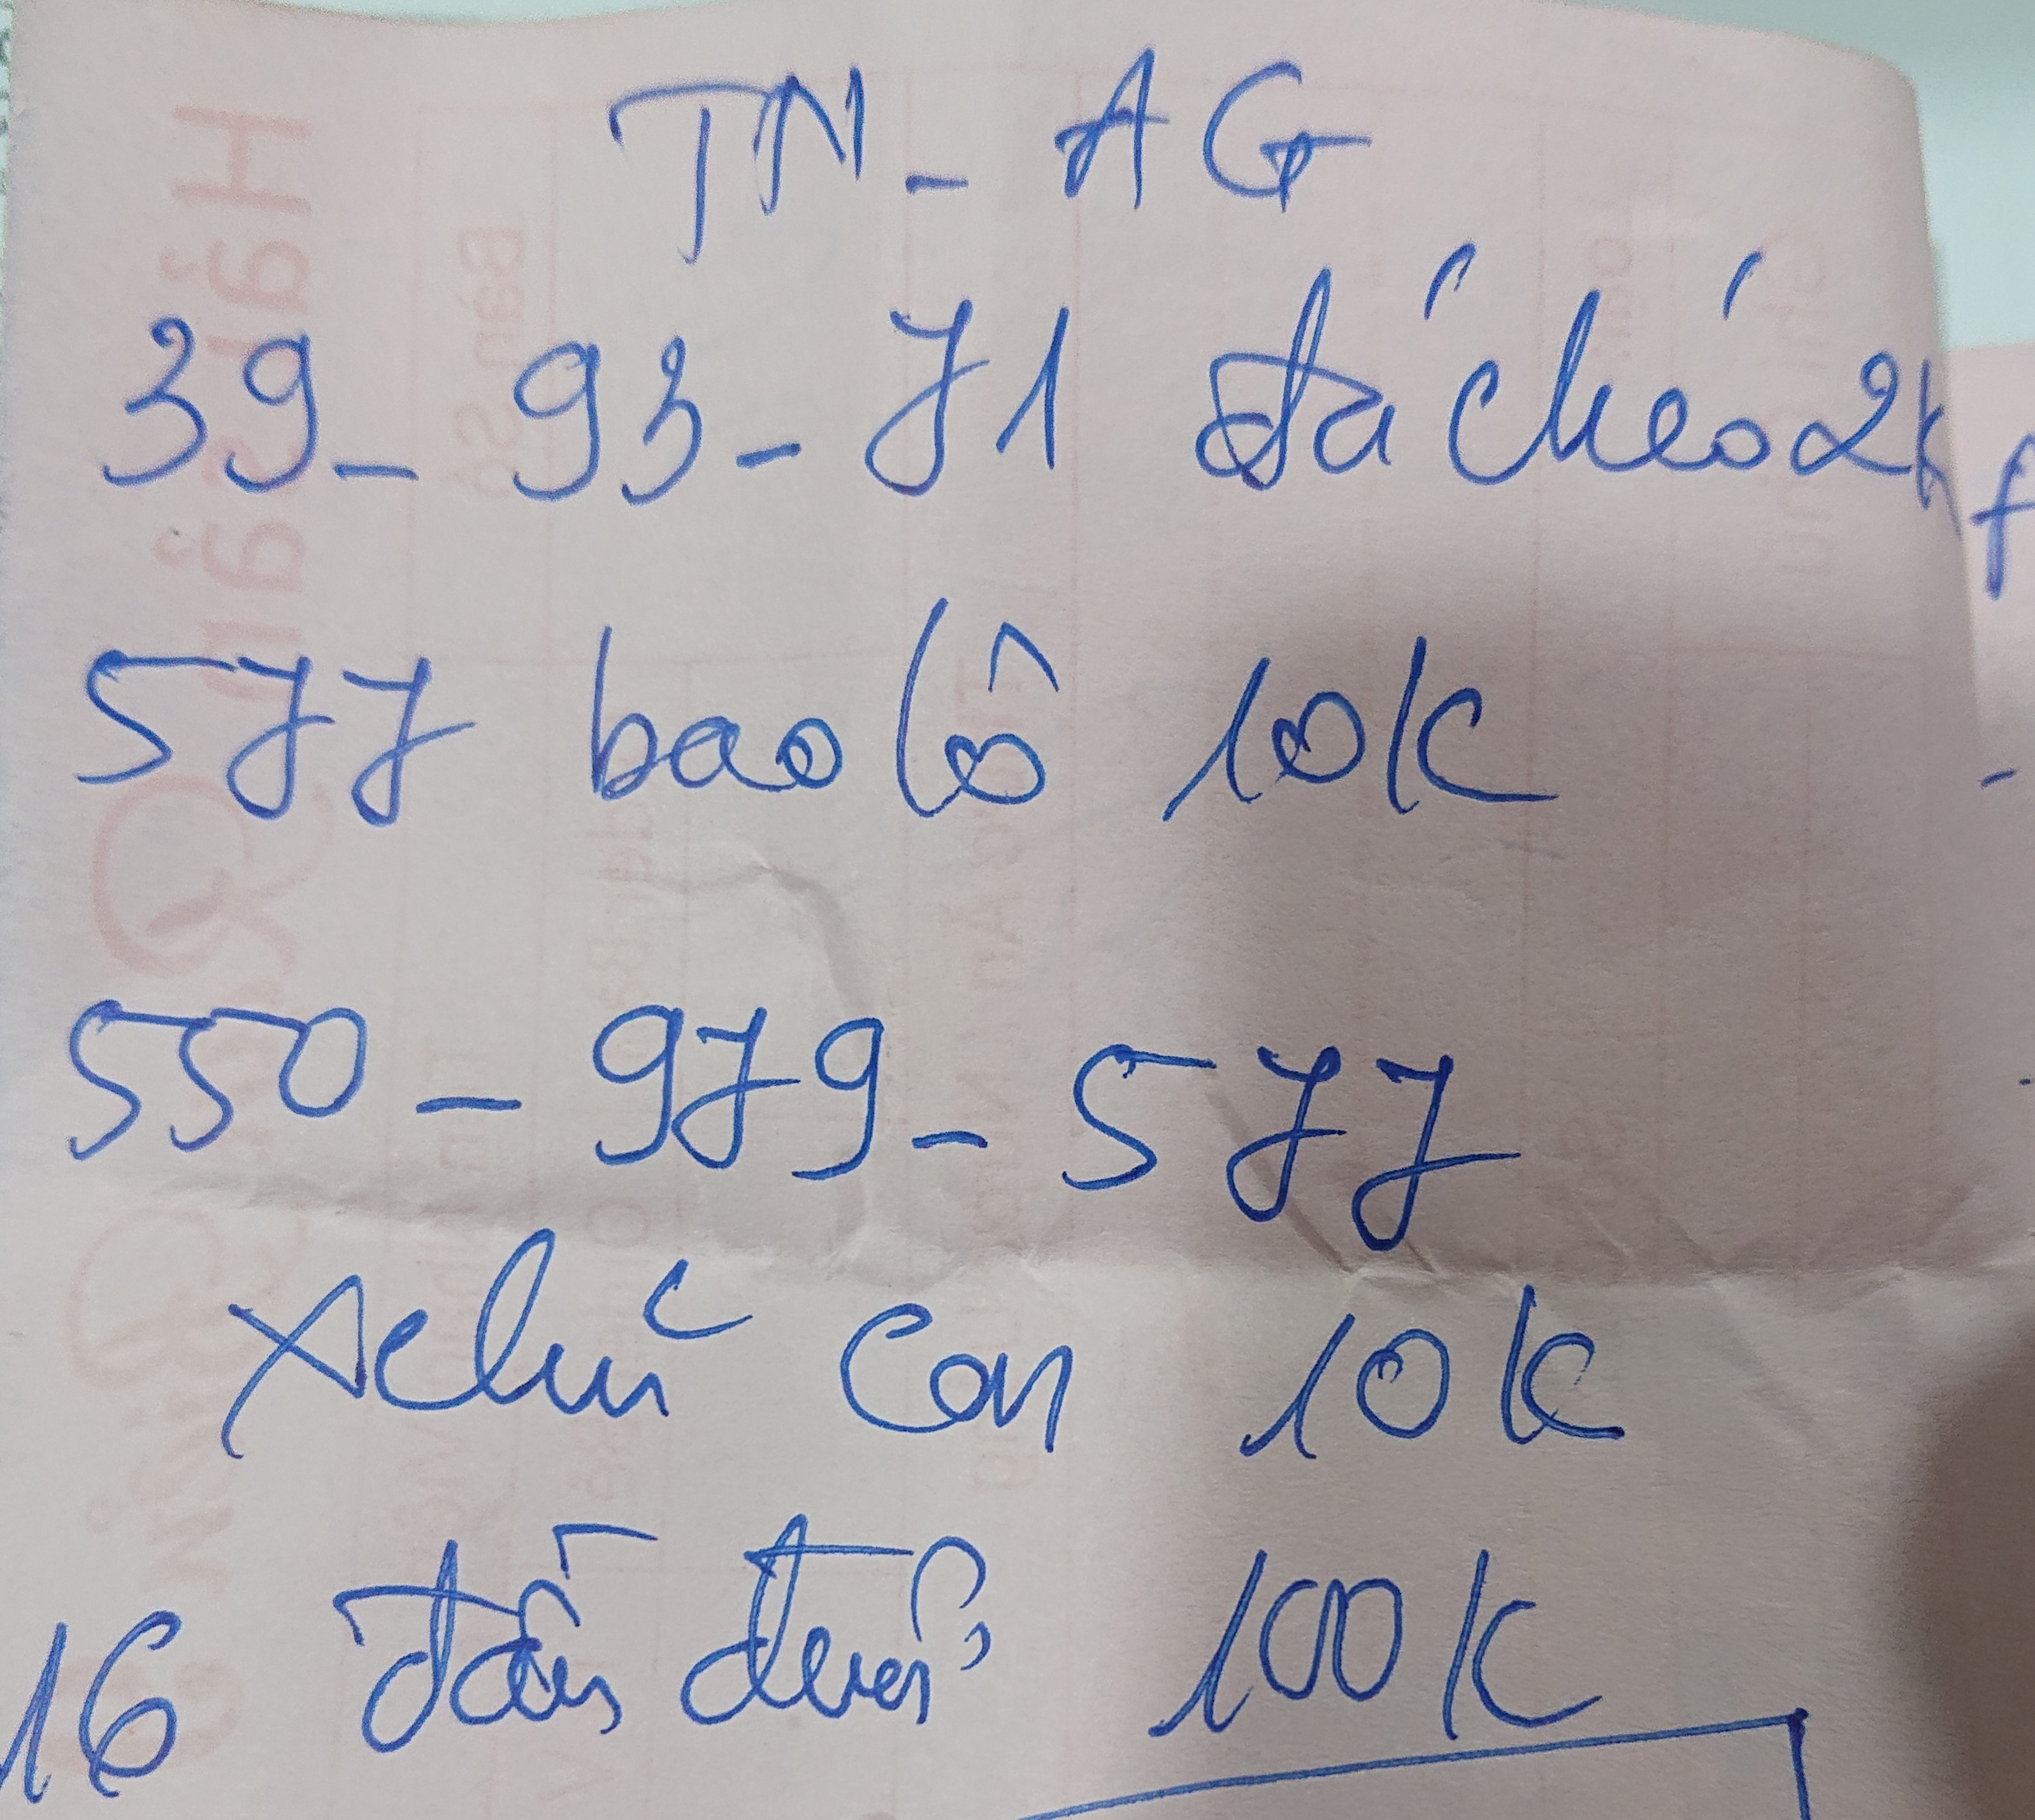 TN - AG
39 - 93 - 71 đá chéo 2k
577 bao lô 10k
550 - 979 - 577
xchủ con 10k
16 đầu đuôi 100k